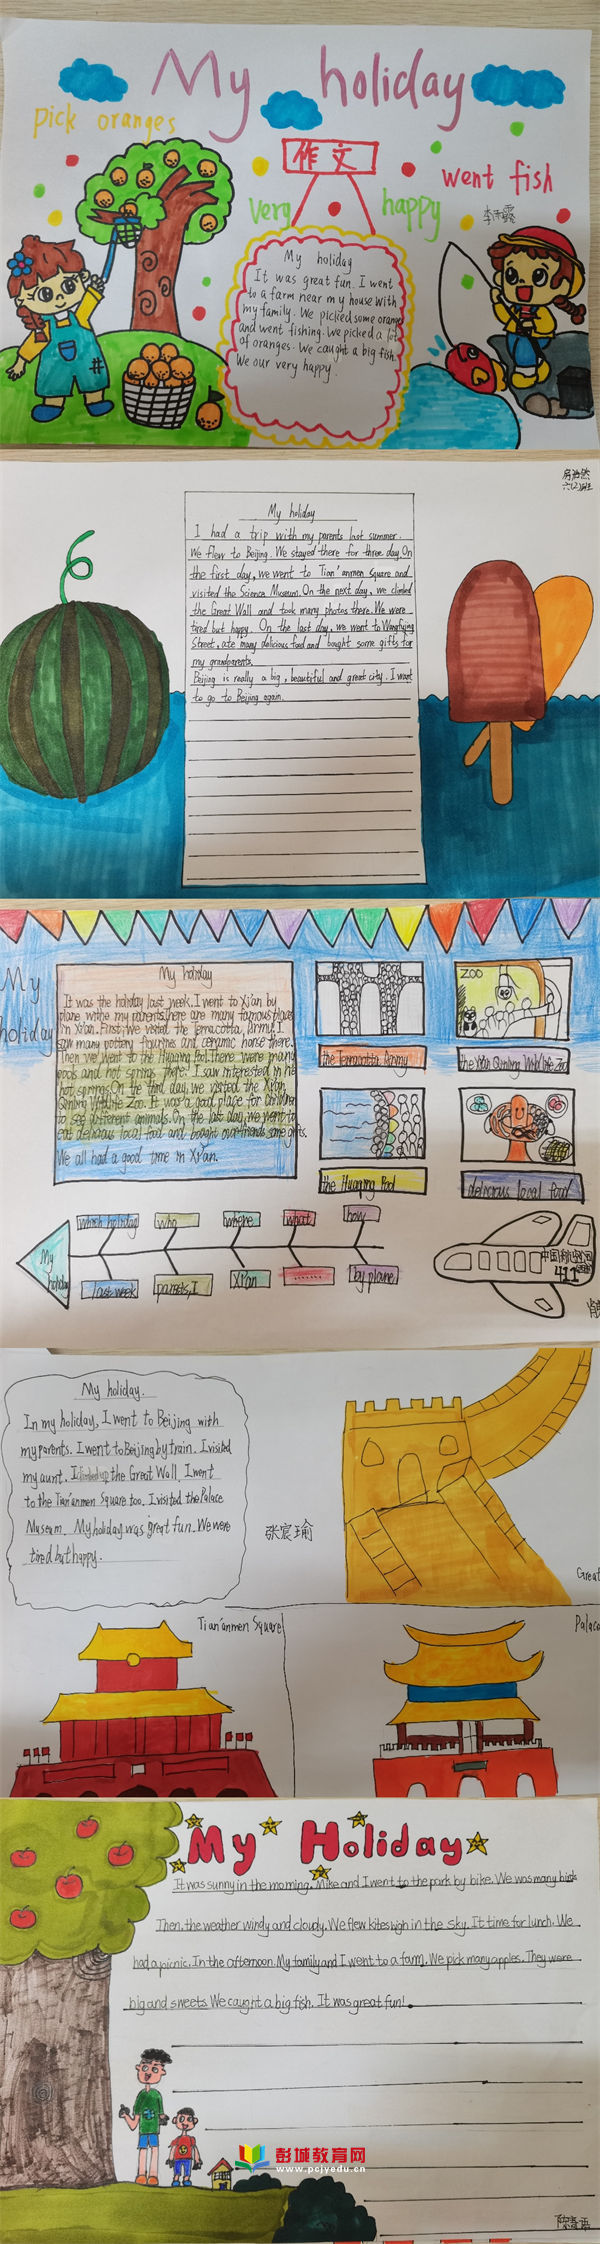 My holiday
pick oranges
作文
went fish
very happy
My holiday
It was great fun. I went
to a farm near my house with
my family. We picked some orange
and went fishing. We picked a lot
of oranges. We caught a big fish.
We our very happy.
六(2)班
My holiday
I had a trip with my parents last summer.
We flew to Beijing. We stayed there for three day. On
the first day, we went to Tian'anmen Square and
visited the Science Museum. On the next day, we climbed
the Great Wall and took many photos there. We were
tired but happy. On the last day, we went to Wangfujing
Street, ate many delicious food and bought some gifts for
my grandparents.
Beijing is really a big, beautiful and great city. I want
to go to Beijing again.
My
holiday
My holiday
It was the holiday last week. I went to Xi'an by
plane withe my parents. there are many famous places
in Xi'an. First, we visited the Terracotta Army. I
saw many pottery figurines and ceramic horse there.
Then we went to the Huaqing Pool. There were many
pools and hot springs there. I saw interested in he
hot springs. On the third day, we visited the Xi'an
Qinling Wildlife Zoo. It was a good place for children
to see different animals. On the last day, we went to
eat delicious local food and bought our friends some gifts.
We all had a good time in Xi'an.
ZOO
the Terracotta Army
the Xi'an Qinling Wildlife Zoo
the Huaqing Pool
delicious local food
which holiday
who
where
what
how
My
holiday
last week
parents, I
Xi'an
......
by plane
中国
411
My holiday.
In my holiday, I went to Beijing with
my parents. I went to Beijing by train. I visited
my aunt. I climbed up the Great Wall. I went
to the Tian'anmen Square too. I visited the Palace
Museum. My holiday was great fun. We were
tired but happy.
张宸瑜
Great
Tian'anmen Square
Palace
My Holiday
It was sunny in the morning. Mike and I went to the park by bike. We was many birds
Then. the weather windy and cloudy. We flew kites high in the sky. It time for lunch. We
had a picnic. In the afternoon. My family and I went to a farm. We pick many apples. They were
big and sweets. We caught a big fish. It was great fun!
彭城教育网
www.pcjyedu.cn